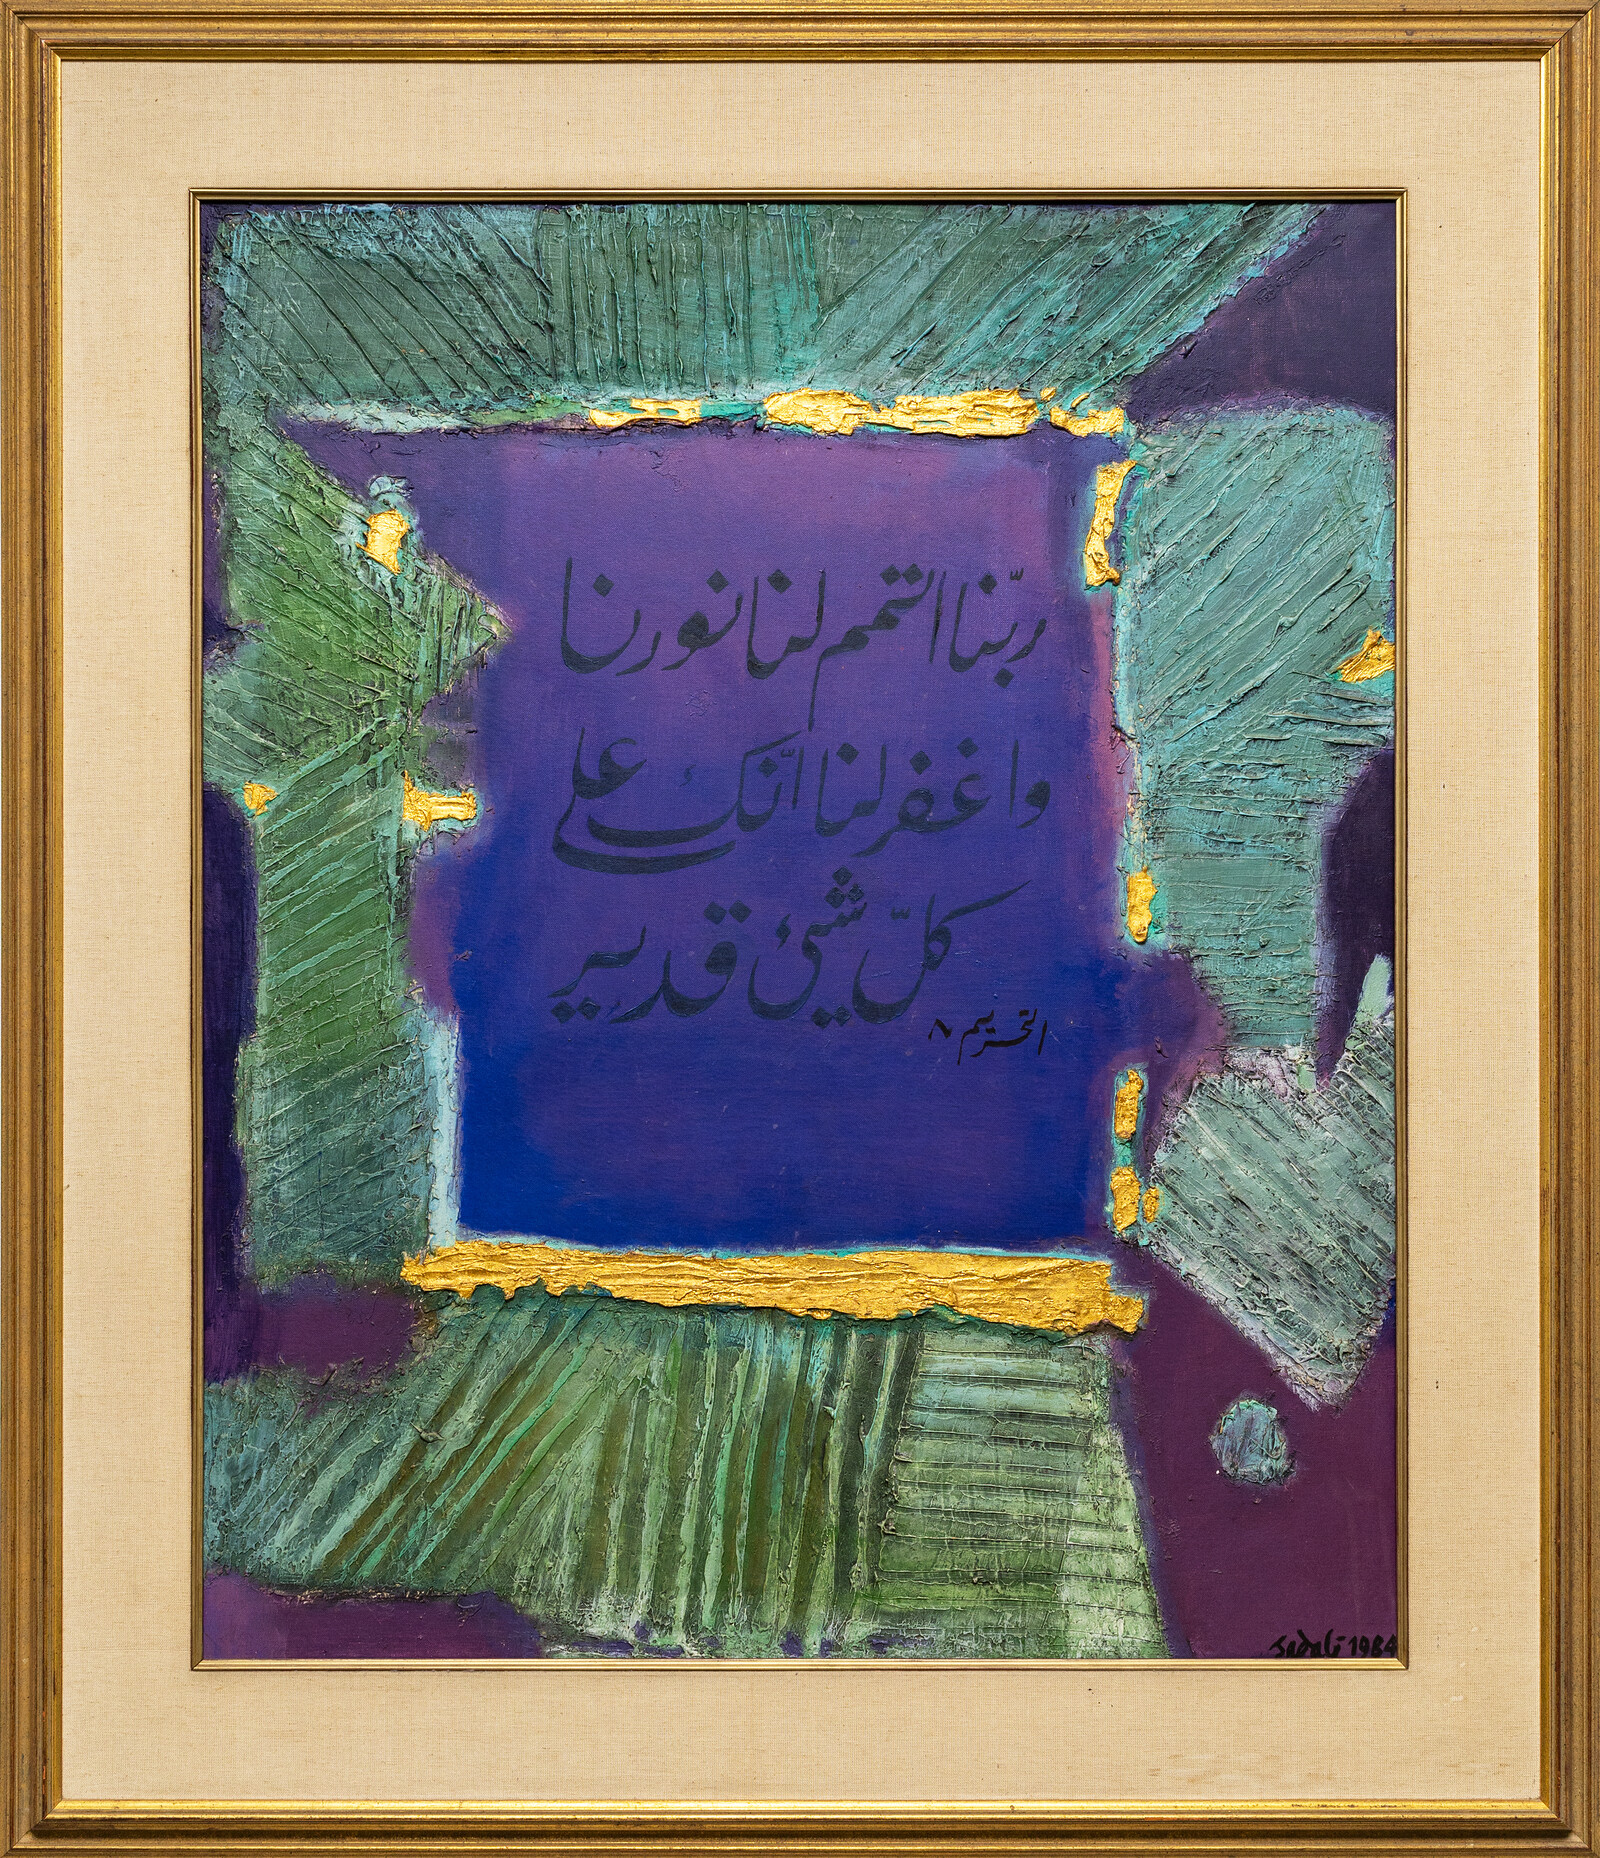 ربّنا اتمم لنا نورنا
واغفر لنا انّك على
كلّ شيئ قدير
التحريم ٨
Sadali 1984